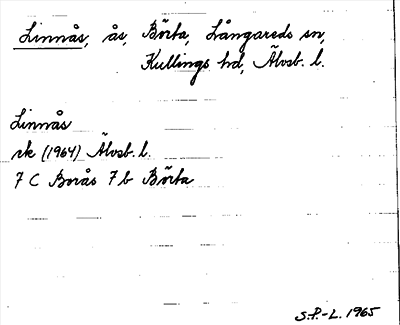 Linnås, ås, Börta, Långareds sn,
Kullings hd, Älvsb. l.
Linnås
rk (1964) Älvsb. l.
7 C Borås 7 b Börta
S.P.-L. 1965